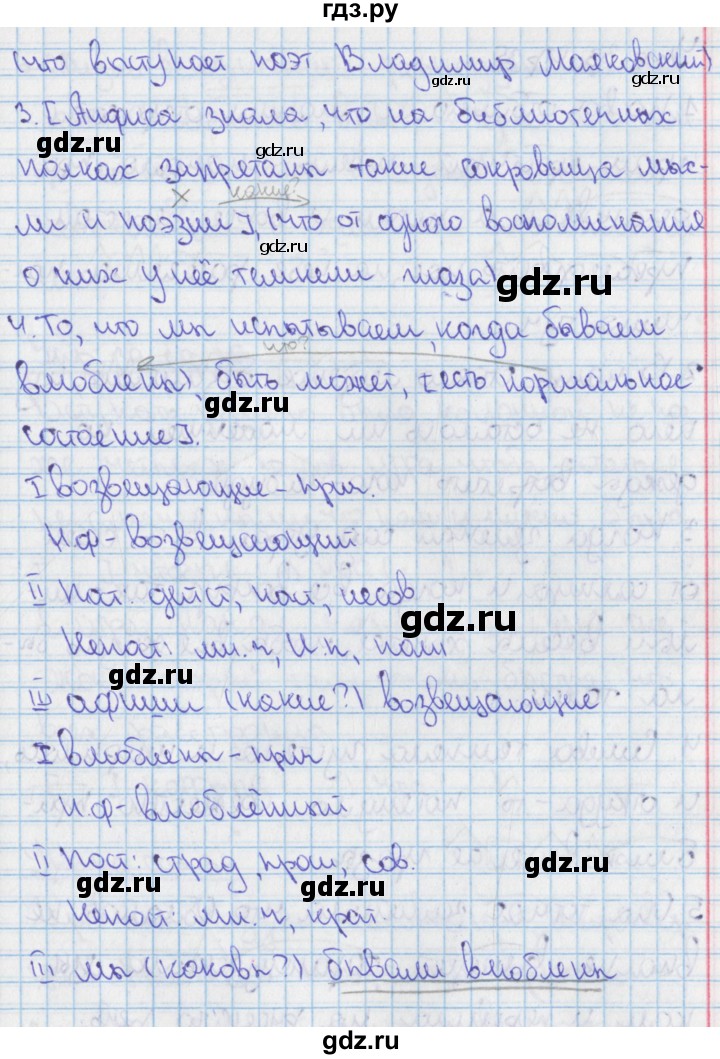 гдз.ру
(что выступает поэт Владимир Маяковский)
gdz.ru gdz.ru
3. [Анфиса знала, что на библиотечных
gdz.ru gdz.ru
полках запретаны такие сокровища мыс-
какие?
ли и поэзии], (что от одного воспоминания
о них у неё темнели глаза)
gdz.ru
4. То, что мы испытываем, когда бываем
gdz.ru что?
влюблены), быть может, [есть нормальное
gdz.ru
состоение].
I возвещающие - прич.
Н.ф - возвещающий
gdz.ru
II Пост: дейст, наст, несов
gdz.ru
Непост: мн.ч, И.п, полн
gdz.ru
III афиши (какие?) возвещающие
I влюблены - прич
Н.ф - влюблённый
II Пост: страд, прош, сов.
gdz.ru gdz.ru
Непост: мн.ч, крат
III мы (каковы?) бывали влюблены
gdz.ru
gdz.ru